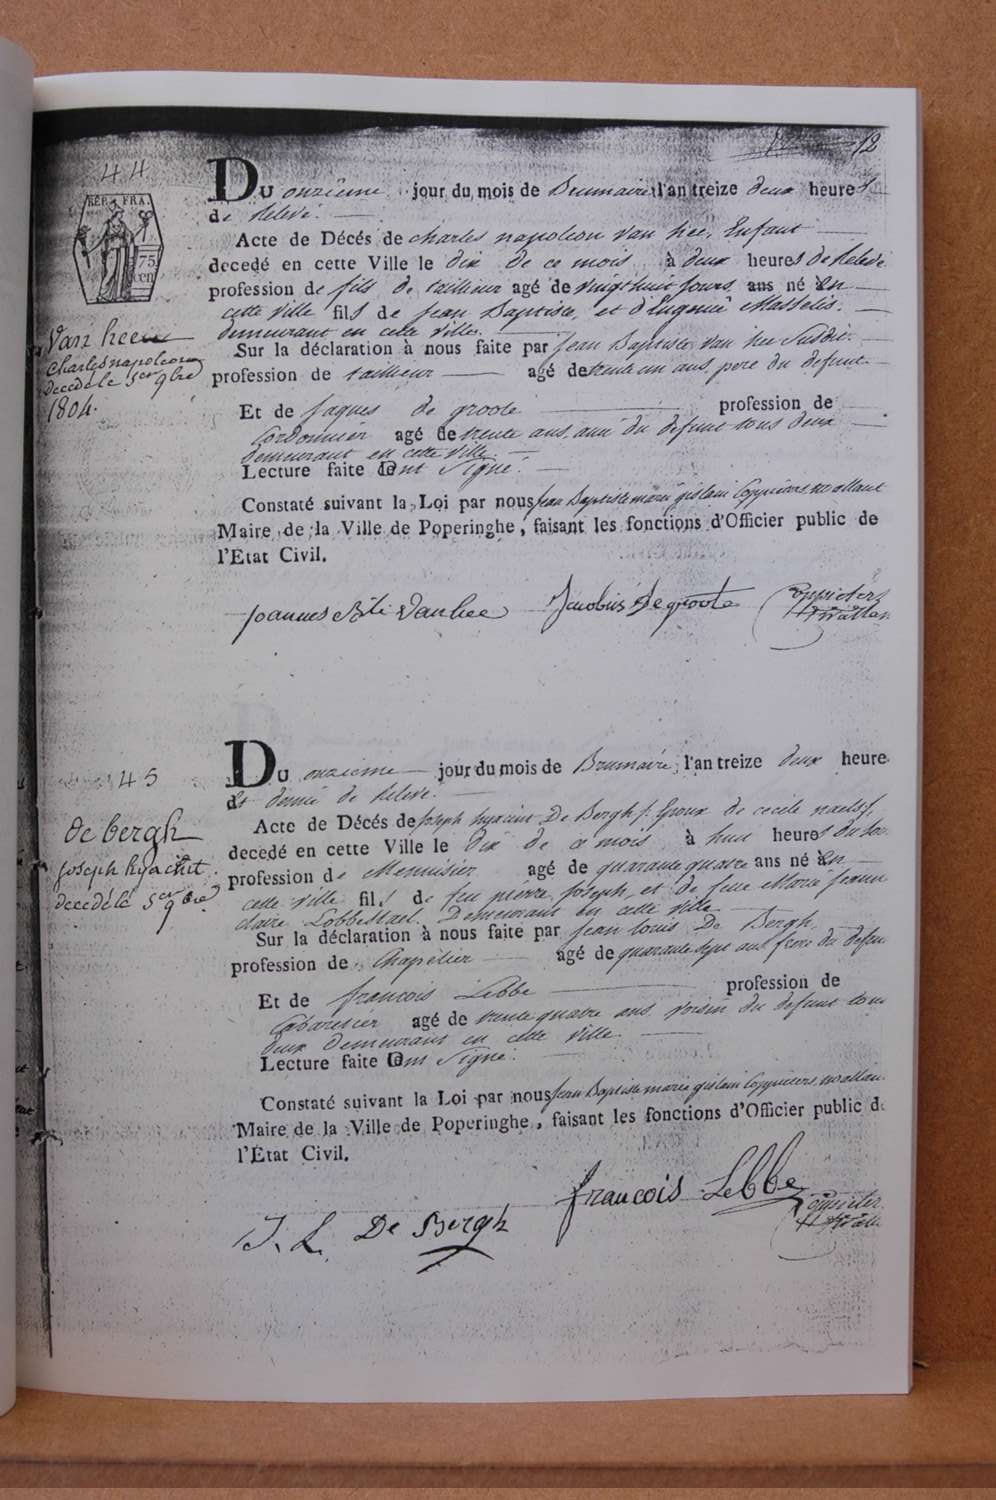 12
44
RÉP. FRA.
75
cen
Van hee
charles napoleon
decedé le 5er 9bre
1804.
Du onzieme jour du mois de Brumaire, l'an treize deux heures
de Relevé.
Acte de Décés de charles napoleon van hee, Enfant
decedé en cette Ville le dix de ce mois à deux heures de Relevé
profession de fils de tailleur agé de vingt huit jours ans né En
cette ville fils de Jean Baptiste, et d'Eugenie Masselis.
demeurant en cette ville.
Sur la déclaration à nous faite par Jean Baptiste van hee Susdit.
profession de tailleur agé de trente un ans, pere du defunt
Et de jaques de groote profession de
Cordonnier agé de trente ans, ami du defunt tous deux
demeurant en cette ville.
Lecture faite ont Signé.
Constaté suivant la Loi par nous Jean Baptiste marie gislain Coppieters wallant
Maire de la Ville de Poperinghe, faisant les fonctions d'Officier public de
l'Etat Civil.
Joannes Bte Vanhee Jacobus Degroote Coppieters
Wallan
45
de bergh
joseph hyacint
decedé le 5er 9bre
Du onzieme jour du mois de Brumaire, l'an treize deux heure
et demie de Relevé.
Acte de Décés de joseph hyacint De Bergh, Epoux de cecile
decedé en cette Ville le dix de ce mois à huit heures du Soi
profession de Menuisier agé de quarante quatre ans né En
cette ville fils de feu pierre joseph, et de feue Marie jeanne
claire Lobbestael. Demeurant en cette ville
Sur la déclaration à nous faite par jean louis De Bergh
profession de Chapelier agé de quarante sept ans frere du defun
Et de francois Lebbe profession de
Cabaretier agé de trente quatre ans voisin du defunt tous
deux demeurant en cette ville
Lecture faite ont Signé.
Constaté suivant la Loi par nous Jean Baptiste marie gislain Coppieters wallan
Maire de la Ville de Poperinghe, faisant les fonctions d'Officier public d
l'État Civil.
J. L. De Bergh francois Lebbe Coppieter
Walla